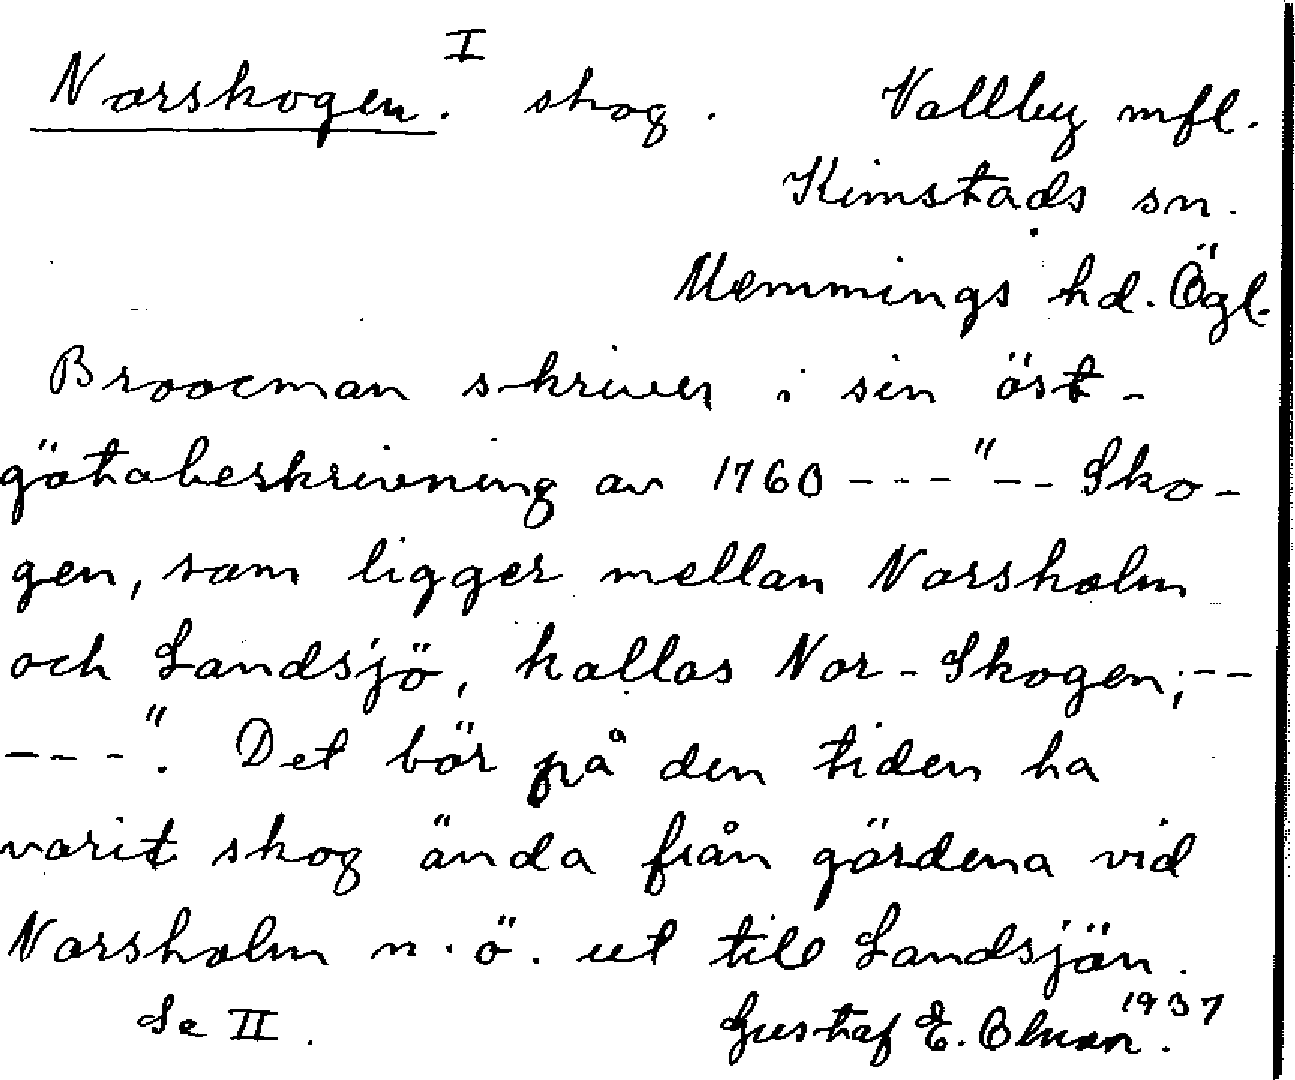 I
Norskogen. skog. Vallby mfl.
Kimstads sn.
Memmings hd. Ögl.
Broocman skriver i sin öst-
götabeskrivning av 1760 ---"-- Sko-
gen, som ligger mellan Norsholm
och Landsjö, kallas Nor-Skogen;--
---". Det bör på den tiden ha
varit skog ända från gärdena vid
Norsholm n.ö. ut till Landsjön.
Se II. Gustaf E. Olman. 1937